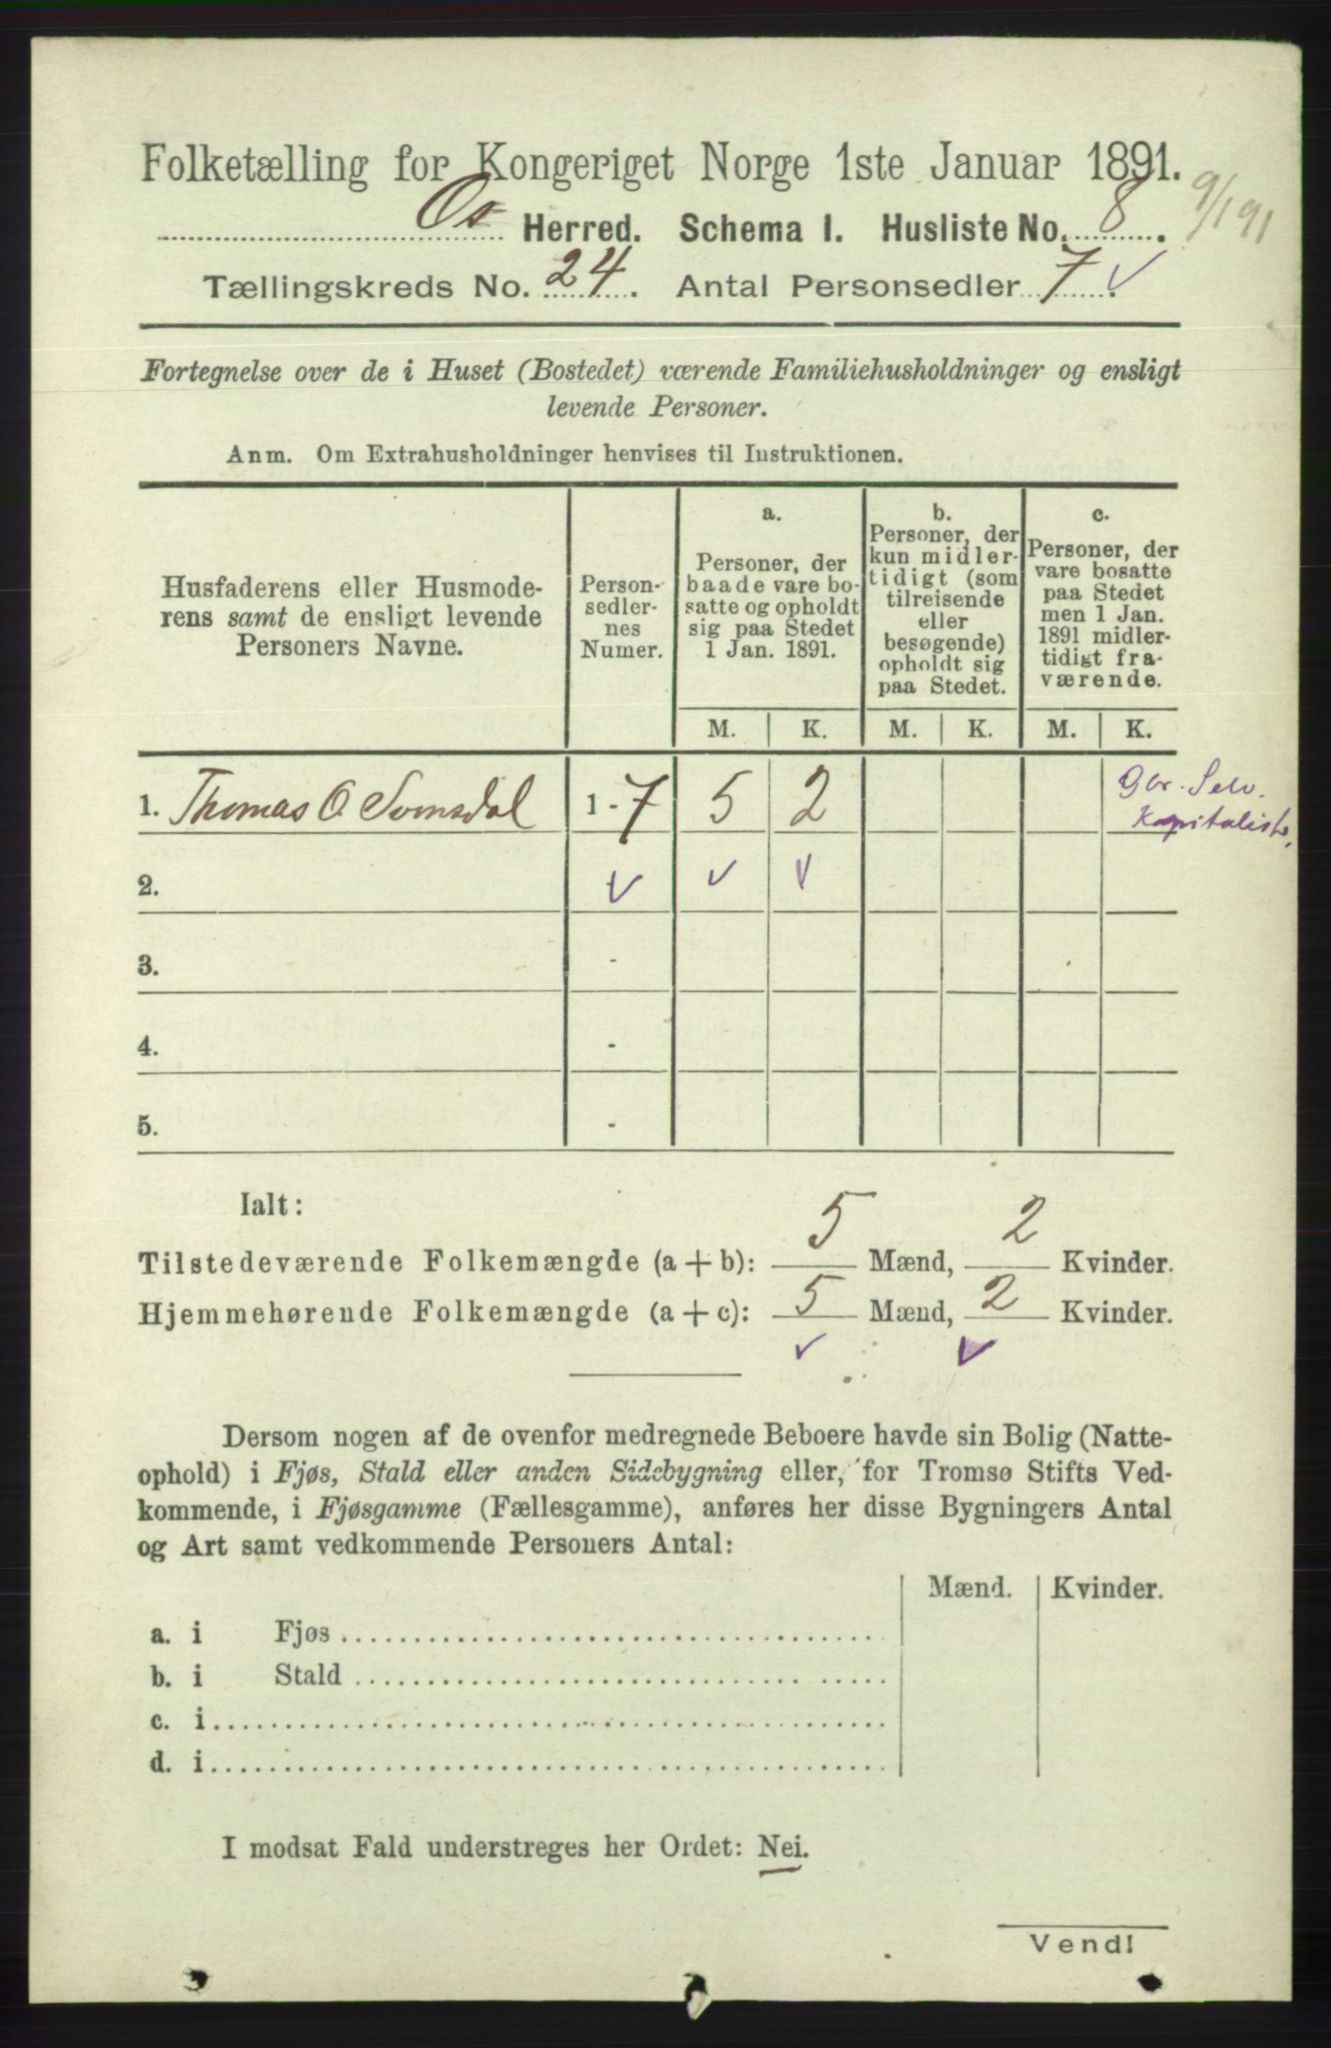 Folketælling for Kongeriget Norge 1ste Januar 1891.
Os Herred. Schema I. Husliste No. 8.
9/1 91
Tællingskreds No. 24. Antal Personsedler 7.
Fortegnelse over de i Huset (Bostedet) værende Familiehusholdninger og ensligt
levende Personer.
Anm. Om Extrahusholdninger henvises til Instruktionen.
Husfaderens eller Husmode-
rens samt de ensligt levende
Personers Navne.
Person-
sedler-
nes
Numer.
a.
Personer, der
baade vare bo-
satte og opholdt
sig paa Stedet
1 Jan. 1891.
b.
Personer, der
kun midler-
tidigt (som
tilreisende
eller
besøgende)
opholdt sig
paa Stedet.
c.
Personer, der
vare bosatte
paa Stedet
men 1 Jan.
1891 midler-
tidigt fra-
værende.
M. K. M. K. M. K.
1. Thomas O 1 - 7 5 2
Gbr. Selv.
Kapitalist
2.
3. -
4. -
5. -
Ialt:
Tilstedeværende Folkemængde (a + b): 5 Mænd, 2 Kvinder.
Hjemmehørende Folkemængde (a + c): 5 Mænd, 2 Kvinder.
Dersom nogen af de ovenfor medregnede Beboere havde sin Bolig (Natte-
ophold) i Fjøs, Stald eller anden Sidebygning eller, for Tromsø Stifts Ved-
kommende, i Fjøsgamme (Fællesgamme), anføres her disse Bygningers Antal
og Art samt vedkommende Personers Antal:
Mænd. Kvinder.
a. i Fjøs
b. i Stald
c. i
d. i
I modsat Fald understreges her Ordet: Nei.
Vend!